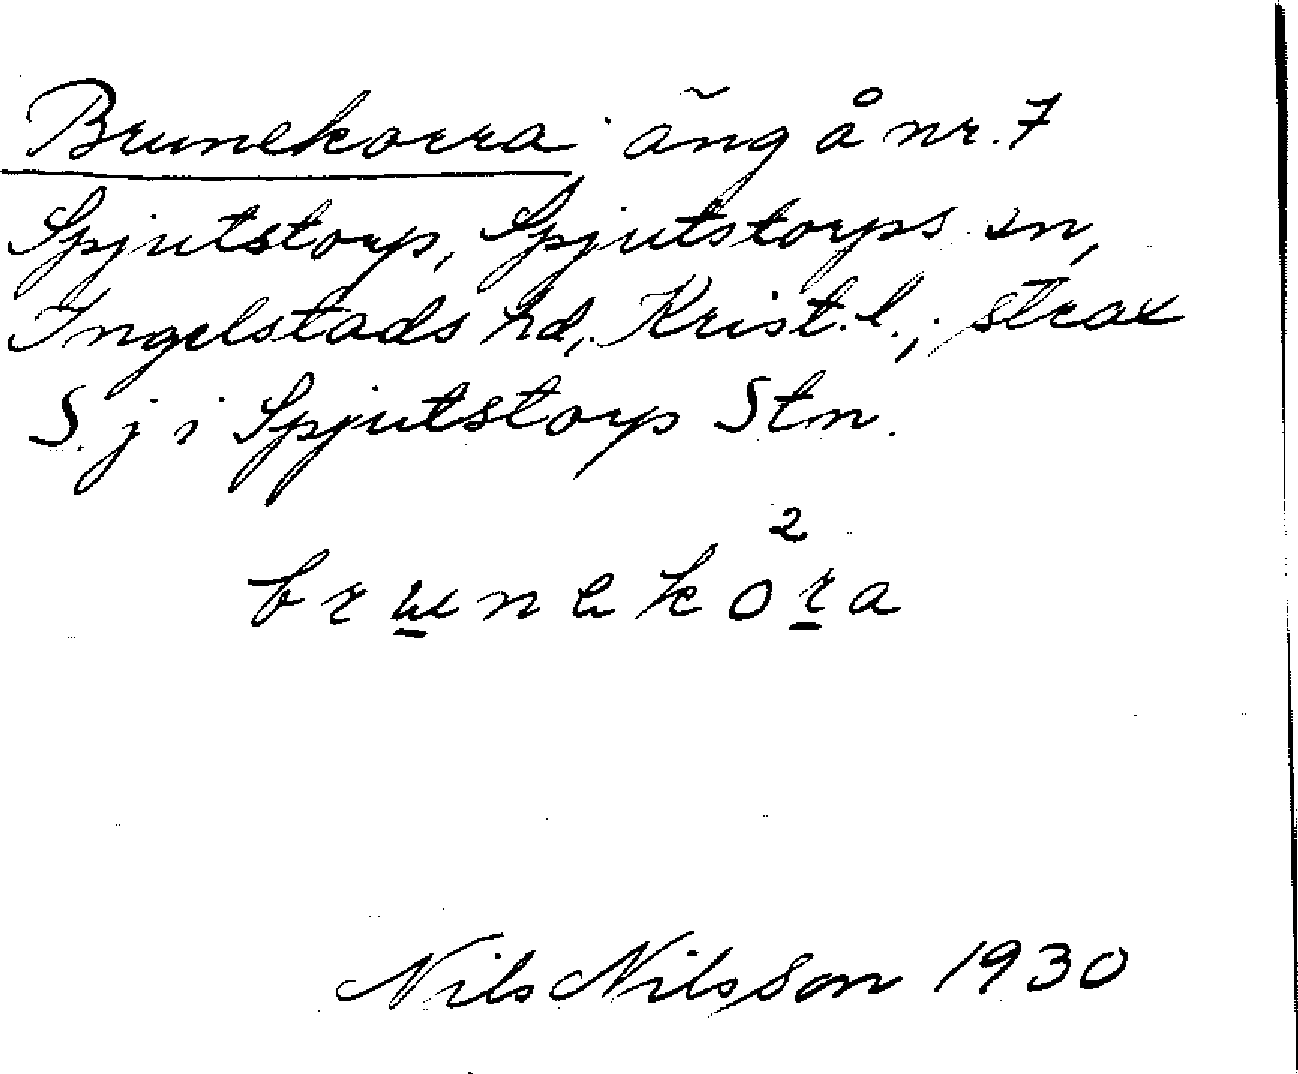 Brunekorra äng å nr. 7
Spjutstorp, Spjutstorps sn,
Ingelstads hd, Krist. l., strax
S. j i Spjutstorp Stn.
2
brunekora
Nils Nilsson 1930